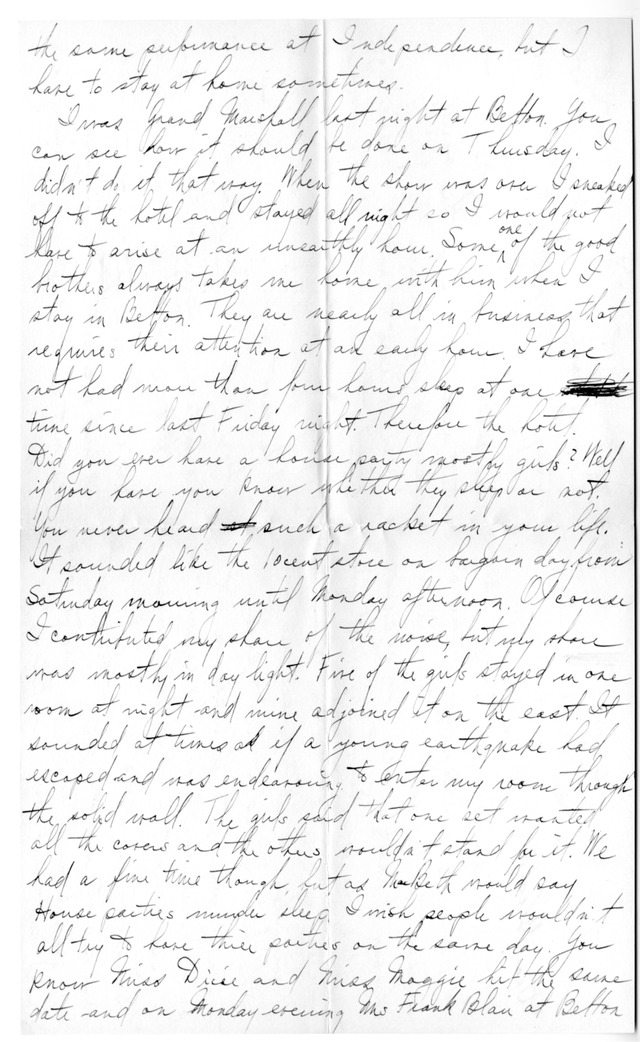 the same performance at Independence, but I
have to stay at home sometimes.
I was Grand Marshall last night at Belton. You
can see how it should be done on Thursday. I
didn't do it that way. When the show was over I sneaked
off to the hotel and stayed all night so I would not
have to arise at an unearthly hour. Some one of the good
brothers always takes me home with him when I
stay in Belton. They are nearly all in business that
requires their attention at an early hour. I have
not had more than four hours sleep at one
time since last Friday night. Therefore the hotel.
Did you ever have a house party mostly girls? Well
if you have you know whether they sleep or not.
You never heard such a racket in your life.
It sounded like the 10 cent store on bargain day from
Saturday morning until Monday afternoon. Of course
I contributed my share of the noise, but my share
was mostly in day light. Five of the girls stayed in one
room at night and mine adjoined it on the east. It
sounded at times as if a young earthquake had
escaped and was endeavoring to enter my room through
the solid wall. The girls said that one set wanted
all the covers and the others wouldn't stand for it. We
had a fine time though, but as McBeth would say
House parties murder sleep. I wish people wouldn't
all try to have their parties on the same day. You
know Miss Dicie and Miss Maggie hit the same
date and on Monday evening Mrs Frank Blair at Belton